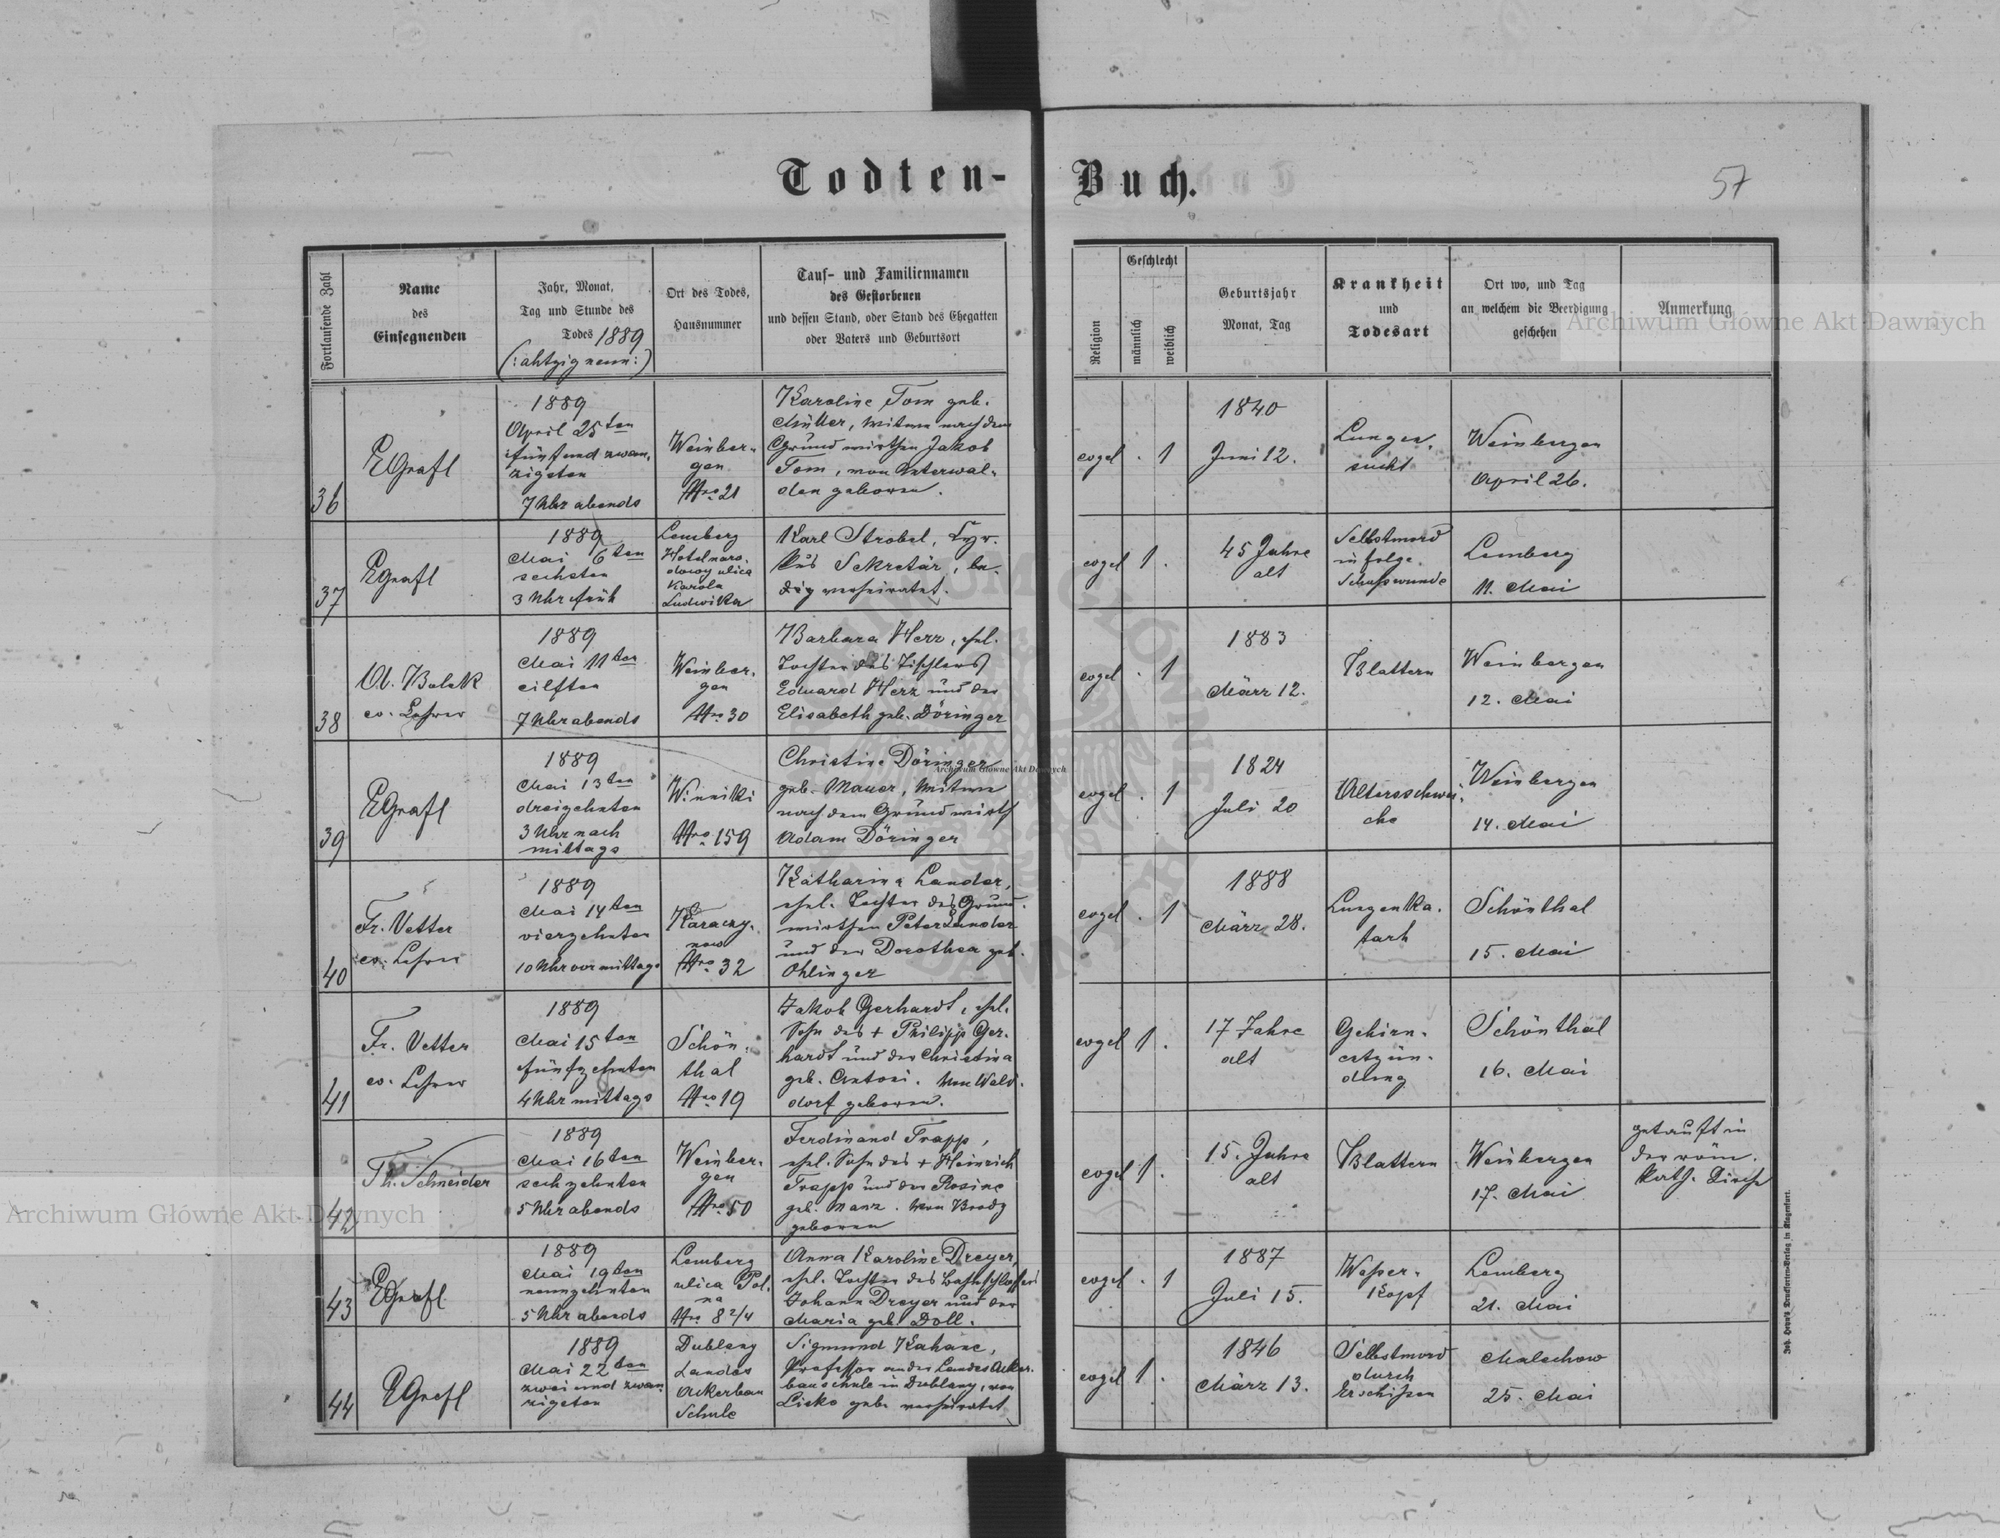 Todten-Buch.
57
Fortlaufende Zahl
Name
des
Einsegnenden
Jahr, Monat,
Tag und Stunde des
Todes 1889
(: ahtzig neun :)
Ort des Todes,
Hausnummer
Tauf- und Familiennamen
des Gestorbenen
und dessen Stand, oder Stand des Ehegatten
oder Vaters und Geburtsort
Religion
Geschlecht
männlich
weiblich
Geburtsjahr
Monat, Tag
Krankheit
und
Todesart
Ort wo, und Tag
an welchem die Beerdigung
geschehen
Anmerkung
36
EGrafl
1889
April 25ten
fünf und zwan,
zigsten
7 Uhr abends
Weinber-
gen
Nro 21
Karoline Tom geb.
Müller, Witwe nach dem
Grundwirthen Jakob
Tom, von Unterwal-
den geboren.
evgel . 1
1840
Juni 12.
Lungen,
sucht
Weinbergen
April 26.
37
EGrafl
1889
Mai 6ten
sechsten
3 Uhr früh
Lemberg
Hotel naro-
dowy ulica
Karola
Ludwika
Karl Strobel,
Sekretär, le-
dig verheiratet.
evgel 1 .
45 Jahre
alt
Selbstmord
in folge
Schusswunde
Lemberg
11. Mai
38
A. Bolek
ev. Lehrer
1889
Mai 11ten
eilften
7 Uhr abends
Weinber-
gen
Nro 30
Barbara Herz, ehel.
Tochter des Tischlers
Eduard Herz und der
Elisabeth geb. Döringer
evgel . 1
1883
März 12.
Blattern
Weinbergen
12. Mai
39
EGrafl
1889
Mai 13ten
dreizehnten
3 Uhr nach
mittags
Winniki
Nro 159
Christine Döringer
geb. Mauer, Witwe
nach dem Grundwirth
Adam Döringer
evgel . 1
1824
Juli 20
Altersschwä-
che
Weinbergen
14. Mai
40
Fr. Vetter
ev. Lehrer
1889
Mai 14ten
vierzehnten
10 Uhr vormittags
Karaczy-
now
Nro 32
Katharina Lander,
ehel. Tochter des Grund-
wirthen Peter Lander
und der Dorothea geb.
Ohlinger
evgel . 1
1888
März 28.
Lungenka-
tarh
Schönthal
15. Mai
41
Fr. Vetter
ev. Lehrer
1889
Mai 15ten
fünfzehnten
4 Uhr mittags
Schön-
thal
Nro 19
Jakob Gerhardt, ehel.
Sohn des + Philipp Ger-
hardt und der Christina
geb. Antoni. Von Wald-
dorf geboren.
evgel 1 .
17 Jahre
alt
Gehirn-
entzün-
dung
Schönthal
16. Mai
42
Th. Schneider
1889
Mai 16ten
sechzehnten
5 Uhr abends
Weinber-
gen
Nro 50
Ferdinand Trapp,
ehel. Sohn des + Heinrich
Trapp und der Rosine
geb. Manz. Von Brody
geboren
evgel 1 .
15. Jahre
alt
Blattern
Weinbergen
17. Mai
getauft in
der röm.
kath. Kirche
43
EGrafl
1889
Mai 19ten
neunzehnten
5 Uhr abends
Lemberg
ulica Pol-
na
Nro 8 2/4
Anna Karoline Dreyer,
ehel. Tochter des Bahnschlossers
Johann Dreyer und der
Maria geb. Doll.
evgel . 1
1887
Juli 15.
Wasser-
kopf
Lemberg
21. Mai
44
EGrafl
1889
Mai 22ten
zwei und zwan
zigsten
Dublany
Landes
Ackerbau
Schule
Sigmund Kahane,
Professor an der Landes Acker-
bauschule in Dublany, von
Lisko geb. verheiratet
evgel 1 .
1846
März 13.
Selbstmord
durch
Erschißen
Malechow
25. Mai
Joh. Heyn's Drucksorten-Verlag in Klagenfurt.
Archiwum Główne Akt Dawnych
Archiwum Główne Akt Dawnych
Archiwum Główne Akt Dawnych